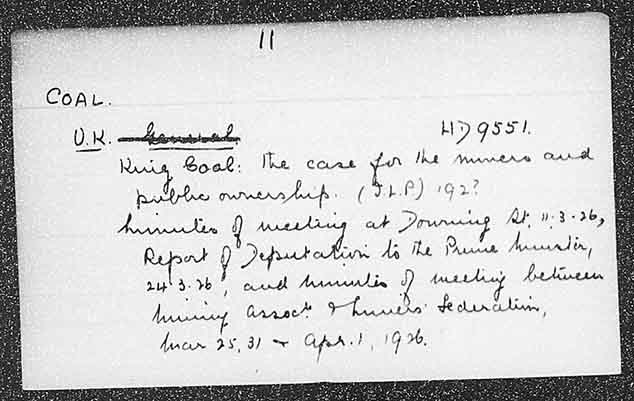 11
COAL.
U.K. General. HD 9551.
King Coal: the case for the miners and
public ownership. (I.L.P) 192?
Minutes of meeting at Downing St. 11.3.26,
Report of Deputation to the Prime Minister,
24.3.26, and minutes of meeting between
Mining Assocn. & Miners' Federation,
Mar 25, 31 & Apr. 1, 1926.